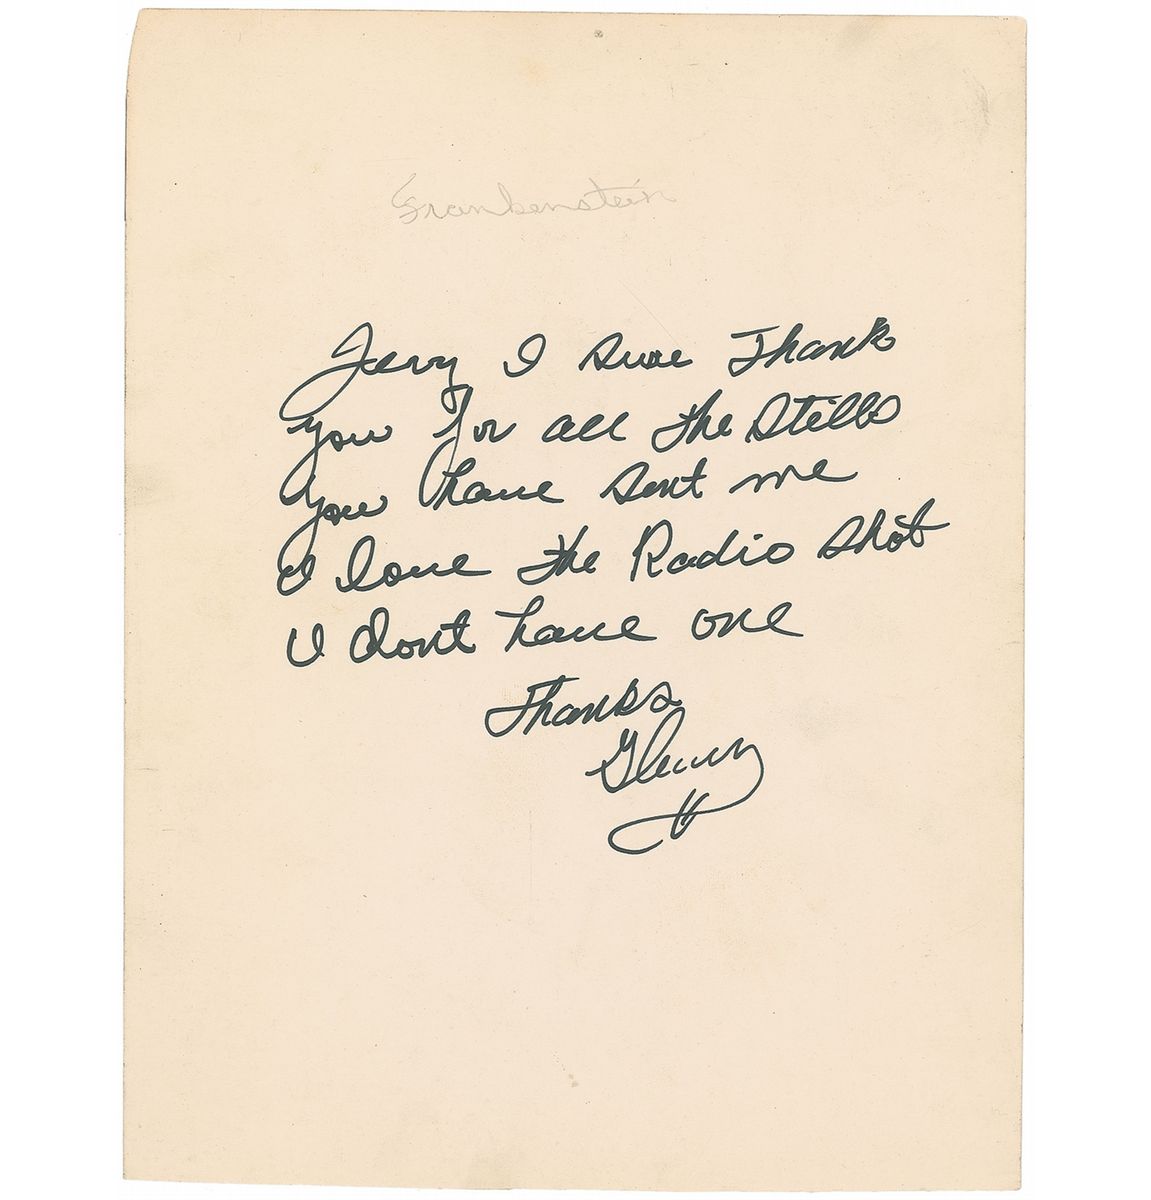 Frankenstein
Jerry I sure Thank
you for all the stills
you have sent me
I love the Radio shot
I dont have one
Thanks
Glenn